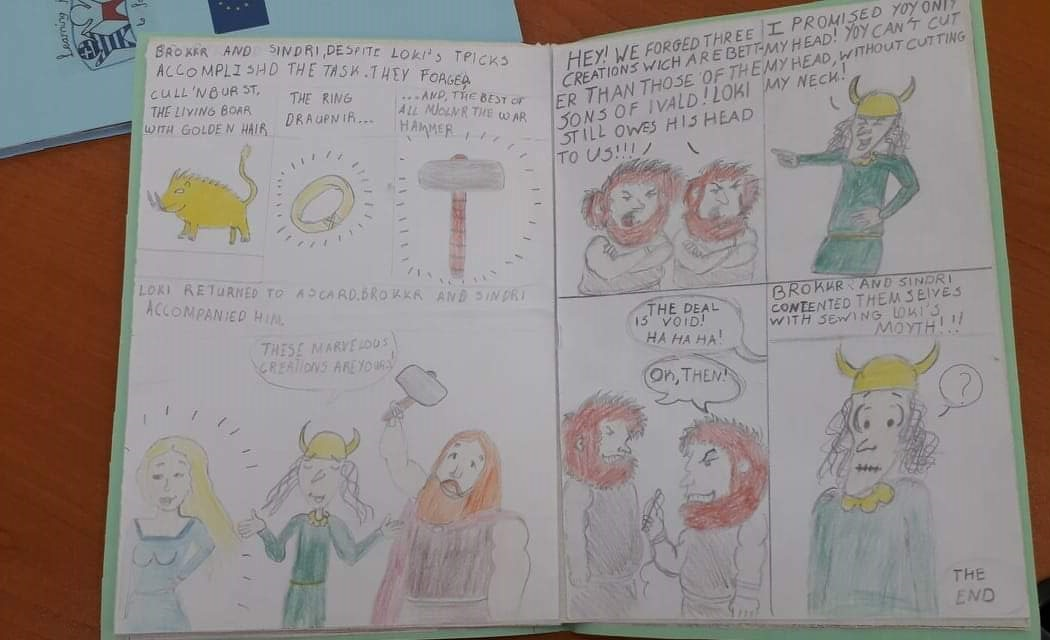 Learning
BROKKR AND SINDRI, DESPITE LOKI'S TRICKS
ACCOMPLISHD THE TASK. THEY FORGED
CULL'NBURST,
THE LIVING BOAR
WITH GOLDEN HAIR
THE RING
DRAUPNIR...
...AND, THE BEST OF
ALL MJOLNR THE WAR
HAMMER
LOKI RETURNED TO ASGARD. BROKKR AND SINDRI
ACCOMPANIED HIM.
THESE MARVELOUS
CREATIONS ARE YOURS!
HEY! WE FORGED THREE
CREATIONS WICH ARE BETT-
ER THAN THOSE OF THE
SONS OF IVALD! LOKI
STILL OWES HIS HEAD
TO US!!!
I PROMISED YOY ONLY
MY HEAD! YOY CAN'T CUT
MY HEAD, WITHOUT CUTTING
MY NECK!
THE DEAL
IS VOID!
HA HA HA!
OK, THEN!
BROKKR AND SINDRI
CONTENTED THEMSELVES
WITH SEWING LOKI'S
MOYTH!!!
?
THE
END